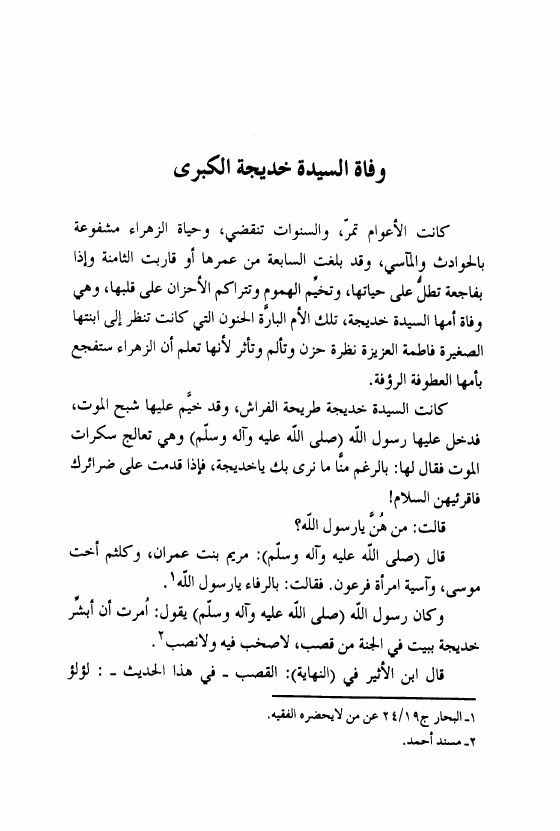 وفاة السيدة خديجة الكبرى
كانت الأعوام تمرّ، والسنوات تنقضي، وحياة الزهراء مشفوعة
بالحوادث والمآسي، وقد بلغت السابعة من عمرها أو قاربت الثامنة وإذا
بفاجعة تطلُّ على حياتها، وتخيَّم الهموم وتتراكم الأحزان على قلبها، وهي
وفاة أمها السيدة خديجة، تلك الأم البارَّة الحنون التي كانت تنظر إلى ابنتها
الصغيرة فاطمة العزيزة نظرة حزن وتألم وتأثر لأنها تعلم أن الزهراء ستفجع
بأمها العطوفة الرؤفة.
كانت السيدة خديجة طريحة الفراش، وقد خيَّم عليها شبح الموت،
فدخل عليها رسول اللّه (صلى اللّه عليه وآله وسلّم) وهي تعالج سكرات
الموت فقال لها: بالرغم منَّا ما نرى بك ياخديجة، فإذا قدمت على ضرائرك
فاقرئيهن السلام!
قالت: من هُنَّ يارسول اللّه؟
قال (صلى اللّه عليه وآله وسلّم): مريم بنت عمران، وكلثم أخت
موسى، وآسية امرأة فرعون. فقالت: بالرفاء يارسول اللّه١.
وكان رسول اللّه (صلى اللّه عليه وآله وسلّم) يقول: اُمرت أن أبشِّر
خديجة ببيت في الجنة من قصب، لاصخب فيه ولانصب٢.
قال ابن الأثير في (النهاية): القصب ـ في هذا الحديث ـ : لؤلؤ
١ـ البحار ج١٩/٢٤ عن من لايحضره الفقيه.
٢ـ مسند أحمد.